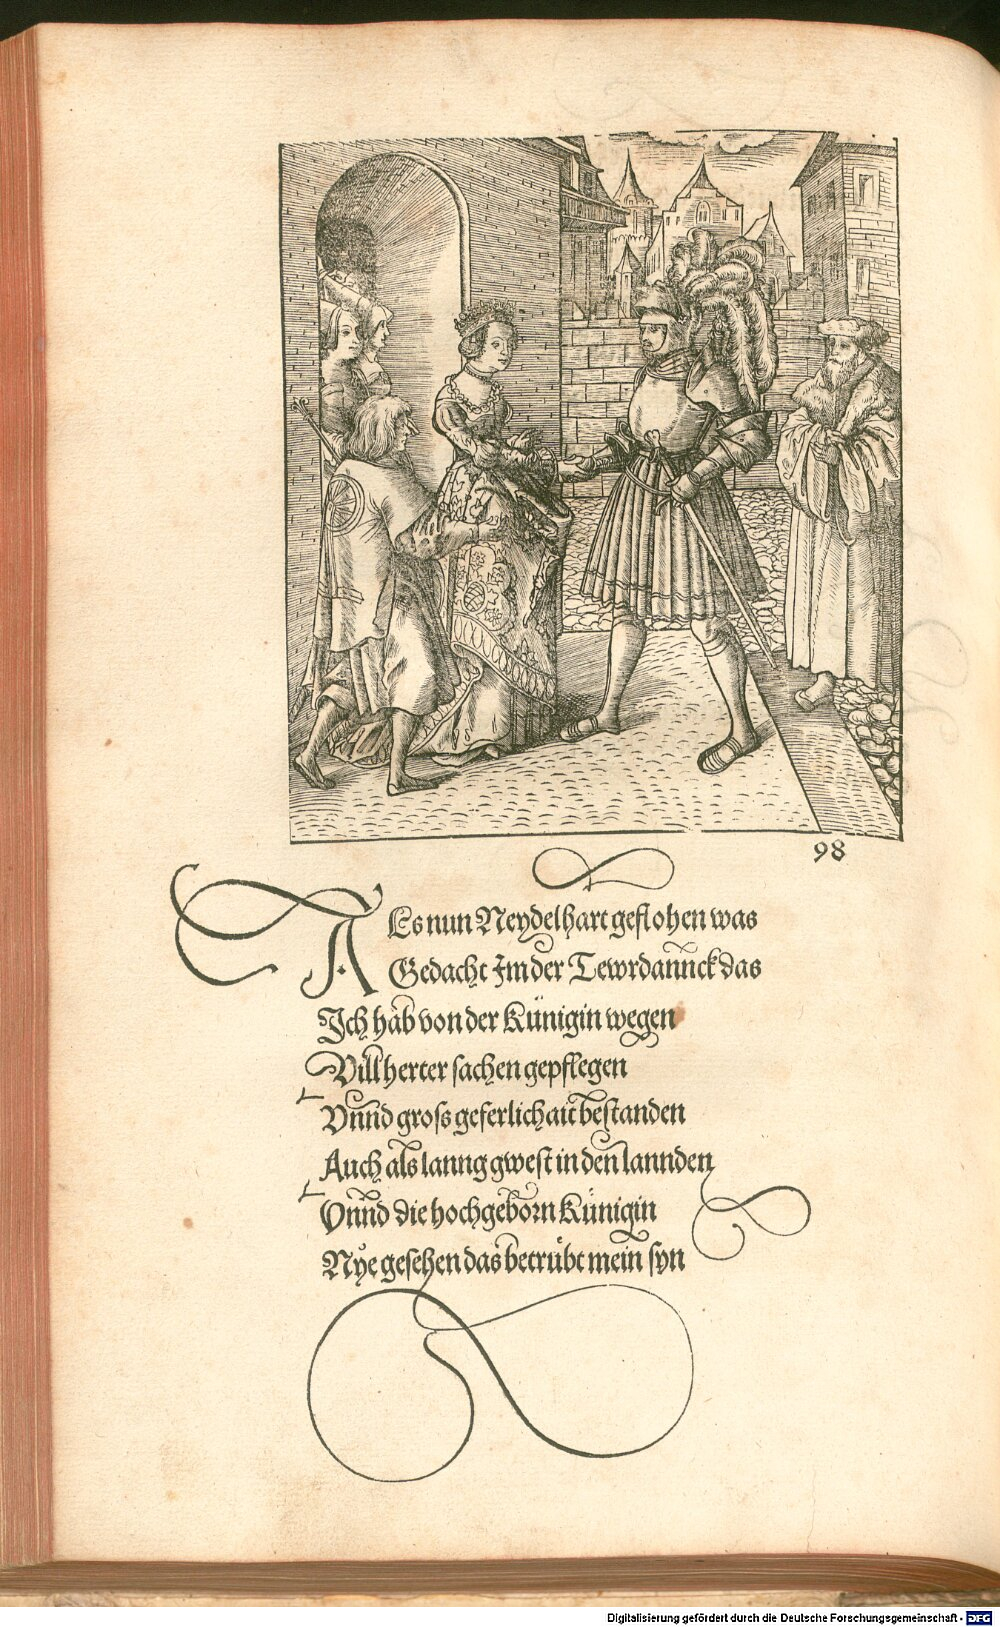 98
ALs nun Neydelhart geflohen was
Gedacht Im der Tewrdannck das
Ich hab von der Künigin wegen
Vill herter sachen gepflegen
Vnnd gross geferlichait bestanden
Auch als lanng gwest in den lannden
Vnnd die hochgeborn Künigin
Nye gesehen das betrübt mein syn
Digitalisierung gefördert durch die Deutsche Forschungsgemeinschaft - DFG